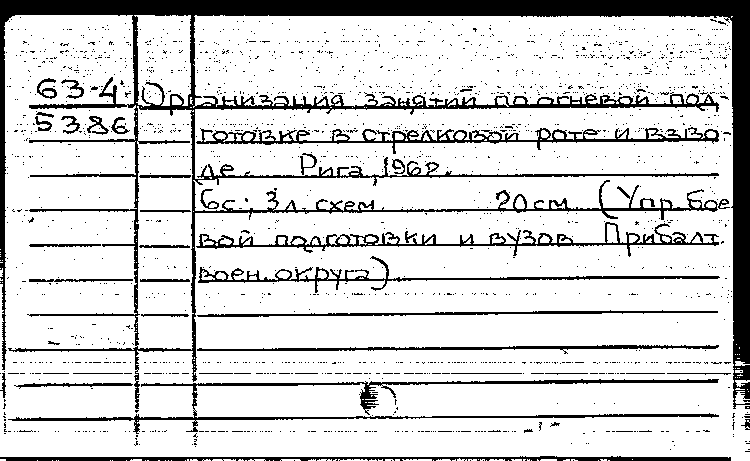 63-4 Организация занятий по огневой под-
5386 готовке в стрелковой роте и взво-
де. Рига, 1962.
6с.; 3л. схем. 20см (Упр. бое
вой подготовки и вузов Прибалт.
воен. округа)